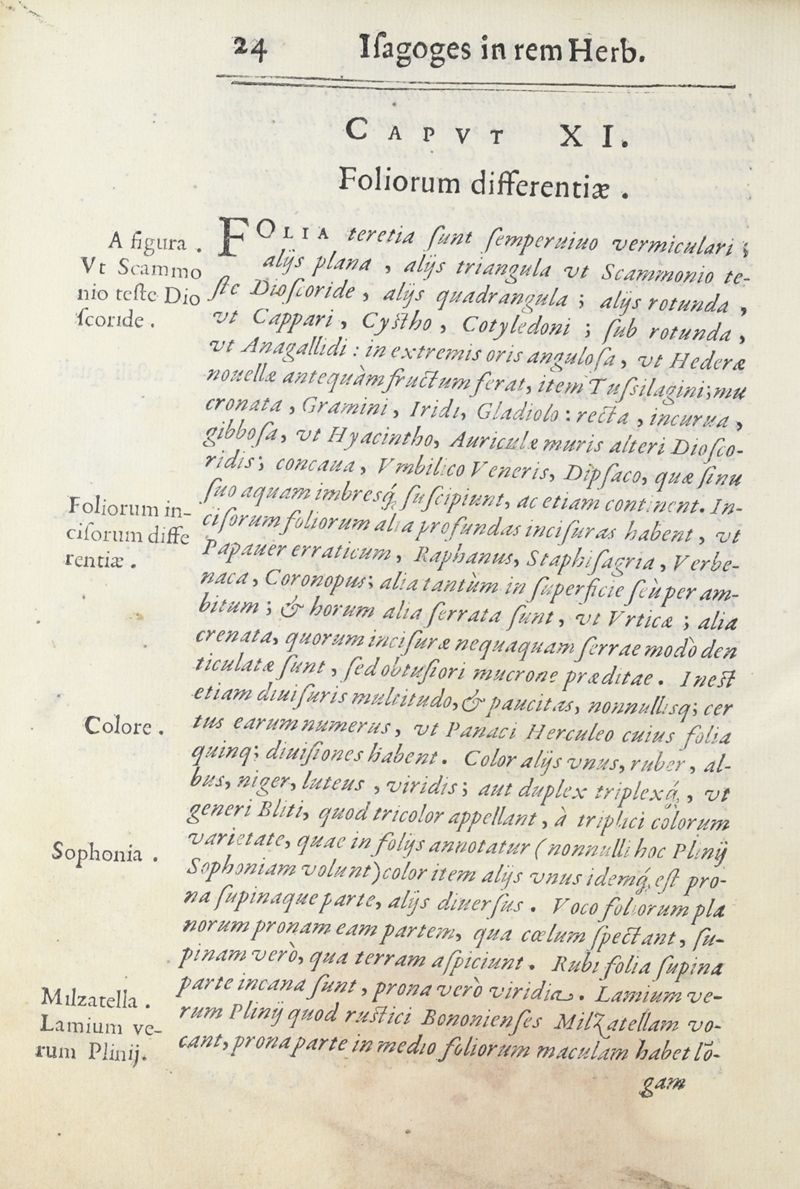 24 Iſagoges in rem Herb.
CAPVT XI.
Foliorum differentiæ .
A figura .
Vt Scammo
nio teſte Dio
ſcoride .
FOLIA teretia ſunt ſemperuiuo vermiculari ;
alijs plana , alijs triangula vt Scammonio te-
ſte Dioſcoride , alijs quadrangula ; alijs rotunda ,
vt Cappari , Cyſtho , Cotyledoni ; ſub rotunda ,
vt Anagallidi : in extremis oris anguloſa , vt Hederæ
nouellæ antequàm fructum ferat, item Tuſsilagini; mu
cronata , Gramini , Iridi, Gladiolo : recta , incurua ,
gibboſa, vt Hyacintho, Auriculæ muris alteri Dioſco-
ridis; concaua , Vmbilico Veneris, Dipſaco, quæ ſinu
ſuo aquam imbresq́; ſuſcipiunt, ac etiam continent. In-
Foliorum in-
ciſorum diffe
rentiæ .
ciſorum foliorum alia profundas inciſuras habent , vt
Papauer erraticum , Raphanus, Staphiſagria , Verbe-
naca , Coronopus; alia tantùm in ſuperficie ſeù per am-
bitum ; & horum alia ſerrata ſunt , vt Vrticæ ; alia
crenata, quorum inciſuræ nequaquam ſerrae modò den
ticulatæ ſunt , ſed obtuſiori mucrone præditae . Ineſt
etiam diuiſuris multitudo, & paucitas, nonnullisq; cer
tus earum numerus , vt Panaci Herculeo cuius folia
quinq; diuiſiones habent . Color alijs vnus, ruber , al-
Colore .
bus, niger, luteus , viridis ; aut duplex triplexq́; , vt
generi Bliti, quod tricolor appellant , à triplici colorum
varietate, quae in folijs annotatur (nonnulli hoc Plinij
Sophonia .
Sophoniam volunt) color item alijs vnus idemq́; eſt pro-
na ſupinaque parte, alijs diuerſus . Voco foliorum pla
norum pronam eam partem, qua cœlum ſpectant , ſu-
pinam verò, qua terram aſpiciunt . Rubi folia ſupina
parte incana ſunt , prona verò viridia . Lamium ve-
Milzatella .
Lamium ve-
rum Plinij.
rum Plinij quod ruſtici Bononienſes Milzatellam vo-
cant, prona parte in medio foliorum maculam habet lō-
gam